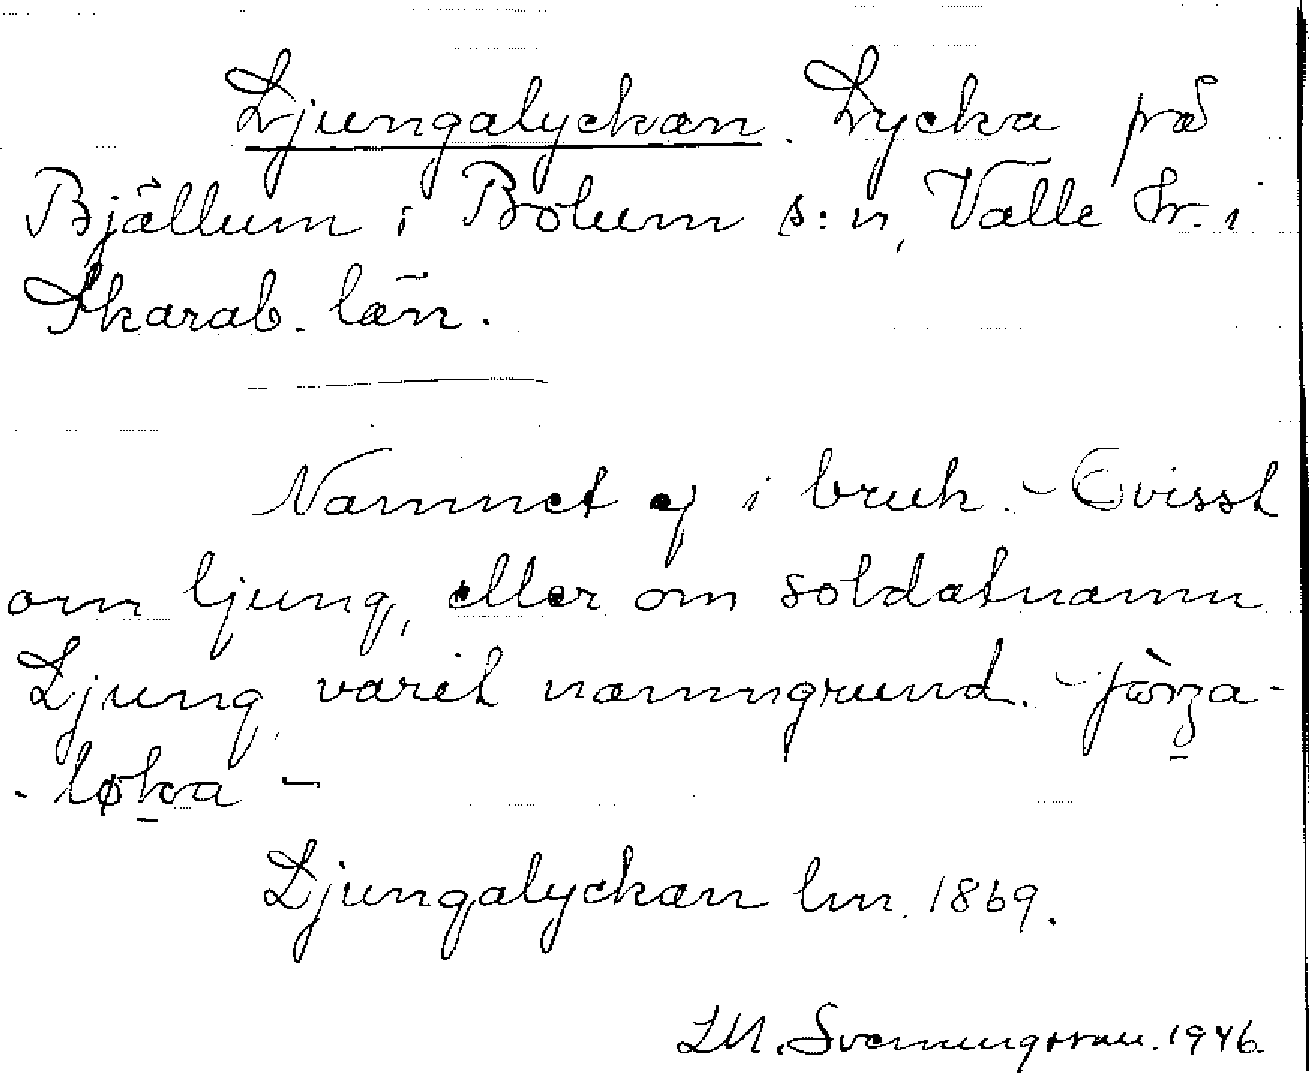 Ljungalyckan. Lycka på
Bjällum i Bolum s:n, Valle hr. i
Skarab. län.
Namnet ej i bruk. - Ovisst
om ljung, eller om soldatnamn
Ljung, varit namngrund. -
Ljungalyckan lm. 1869.
LM. Svenungsson. 1946.